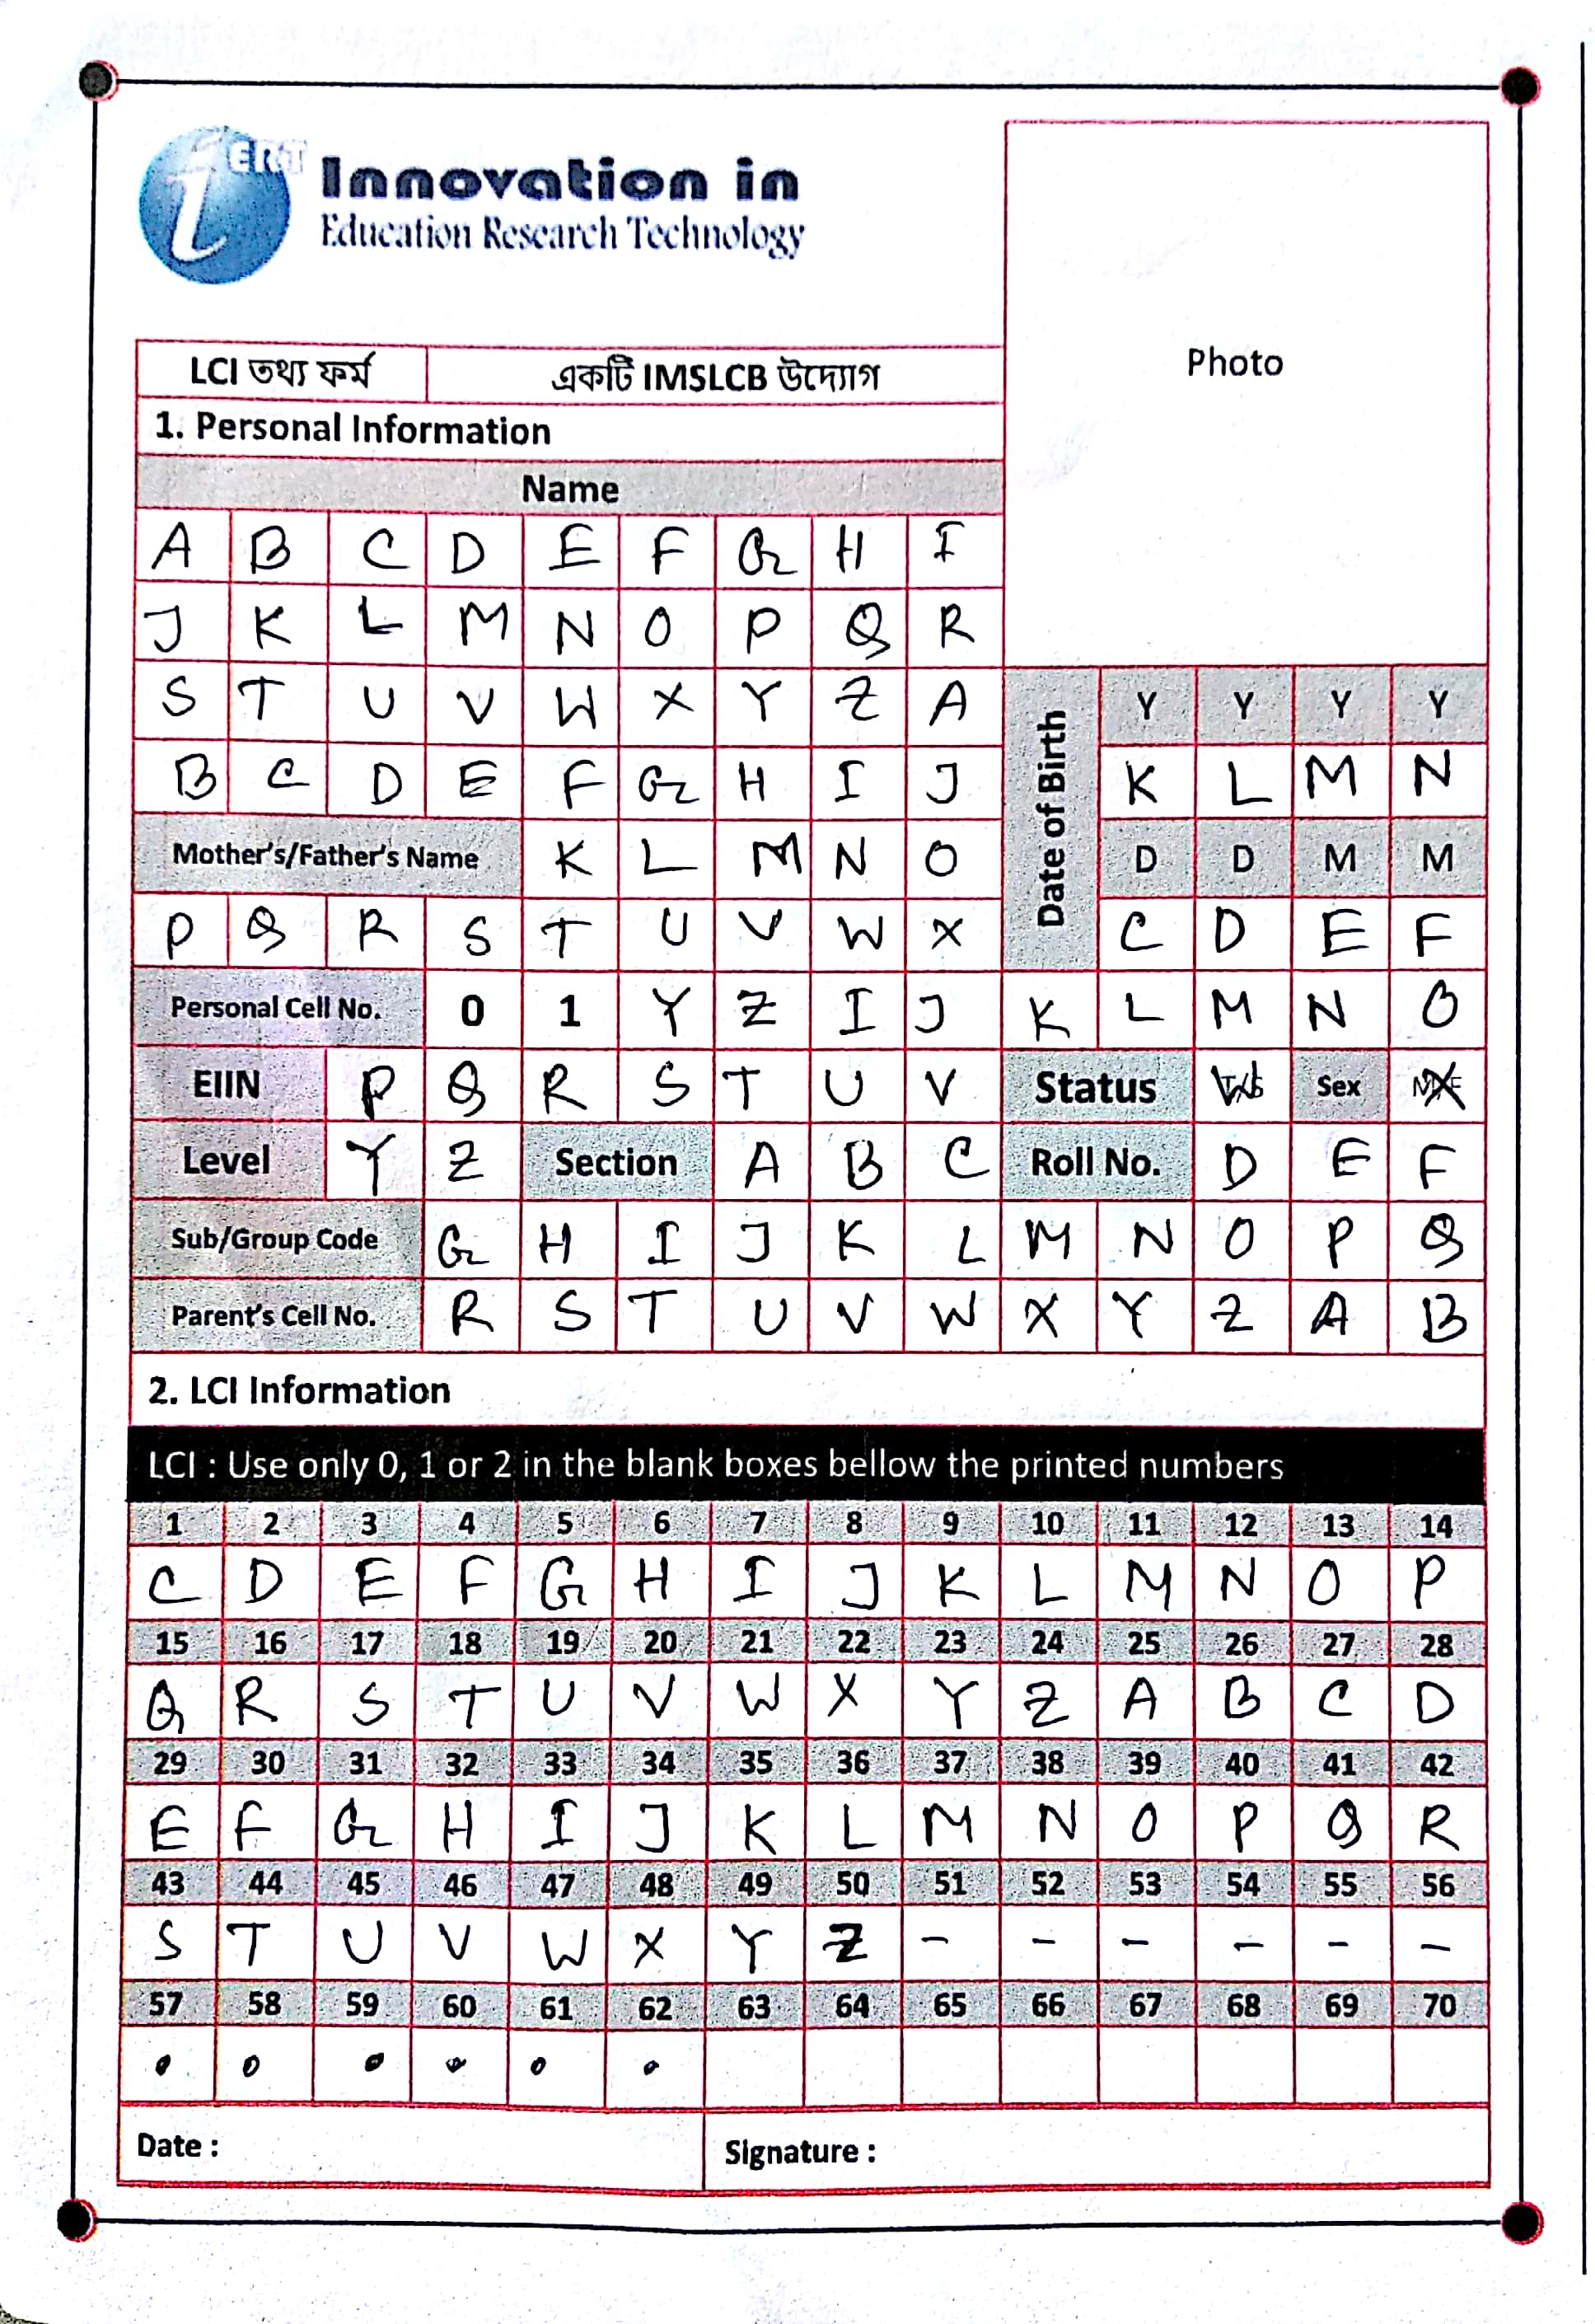 iERT
Innovation in
Education Research Technology
Photo
LCI তথ্য ফর্ম একটি IMSLCB উদ্যোগ
1. Personal Information
Name
A B C D E F G H I
J K L M N O P Q R
S T U V W X Y Z A
Date of Birth
Y Y Y Y
B C D E F G H I J K L M N
Mother's/Father's Name K L M N O D D M M
P Q R S T U V W X C D E F
Personal Cell No. 0 1 Y Z I J K L M N O
EIIN P Q R S T U V Status Sex
Level Y Z Section A B C Roll No. D E F
Sub/Group Code G H I J K L M N O P Q
Parent's Cell No. R S T U V W X Y Z A B
2. LCI Information
LCI : Use only 0, 1 or 2 in the blank boxes bellow the printed numbers
1 2 3 4 5 6 7 8 9 10 11 12 13 14
C D E F G H I J K L M N O P
15 16 17 18 19 20 21 22 23 24 25 26 27 28
Q R S T U V W X Y Z A B C D
29 30 31 32 33 34 35 36 37 38 39 40 41 42
E F G H I J K L M N O P Q R
43 44 45 46 47 48 49 50 51 52 53 54 55 56
S T U V W X Y Z - - - - - -
57 58 59 60 61 62 63 64 65 66 67 68 69 70
Date : Signature :